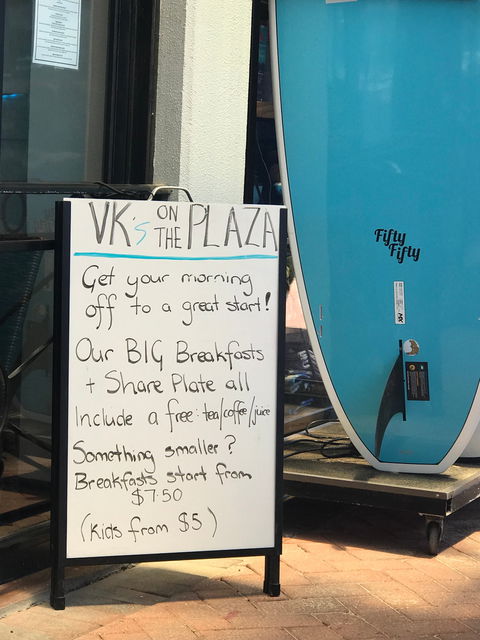 VK's ON THE PLAZA
Get your morning
off to a great start!
Our BIG Breakfasts
+ Share Plate all
Include a free: tea/coffee/juice
Something smaller?
Breakfasts start from
$7.50
(Kids from $5)
Fifty
Fifty